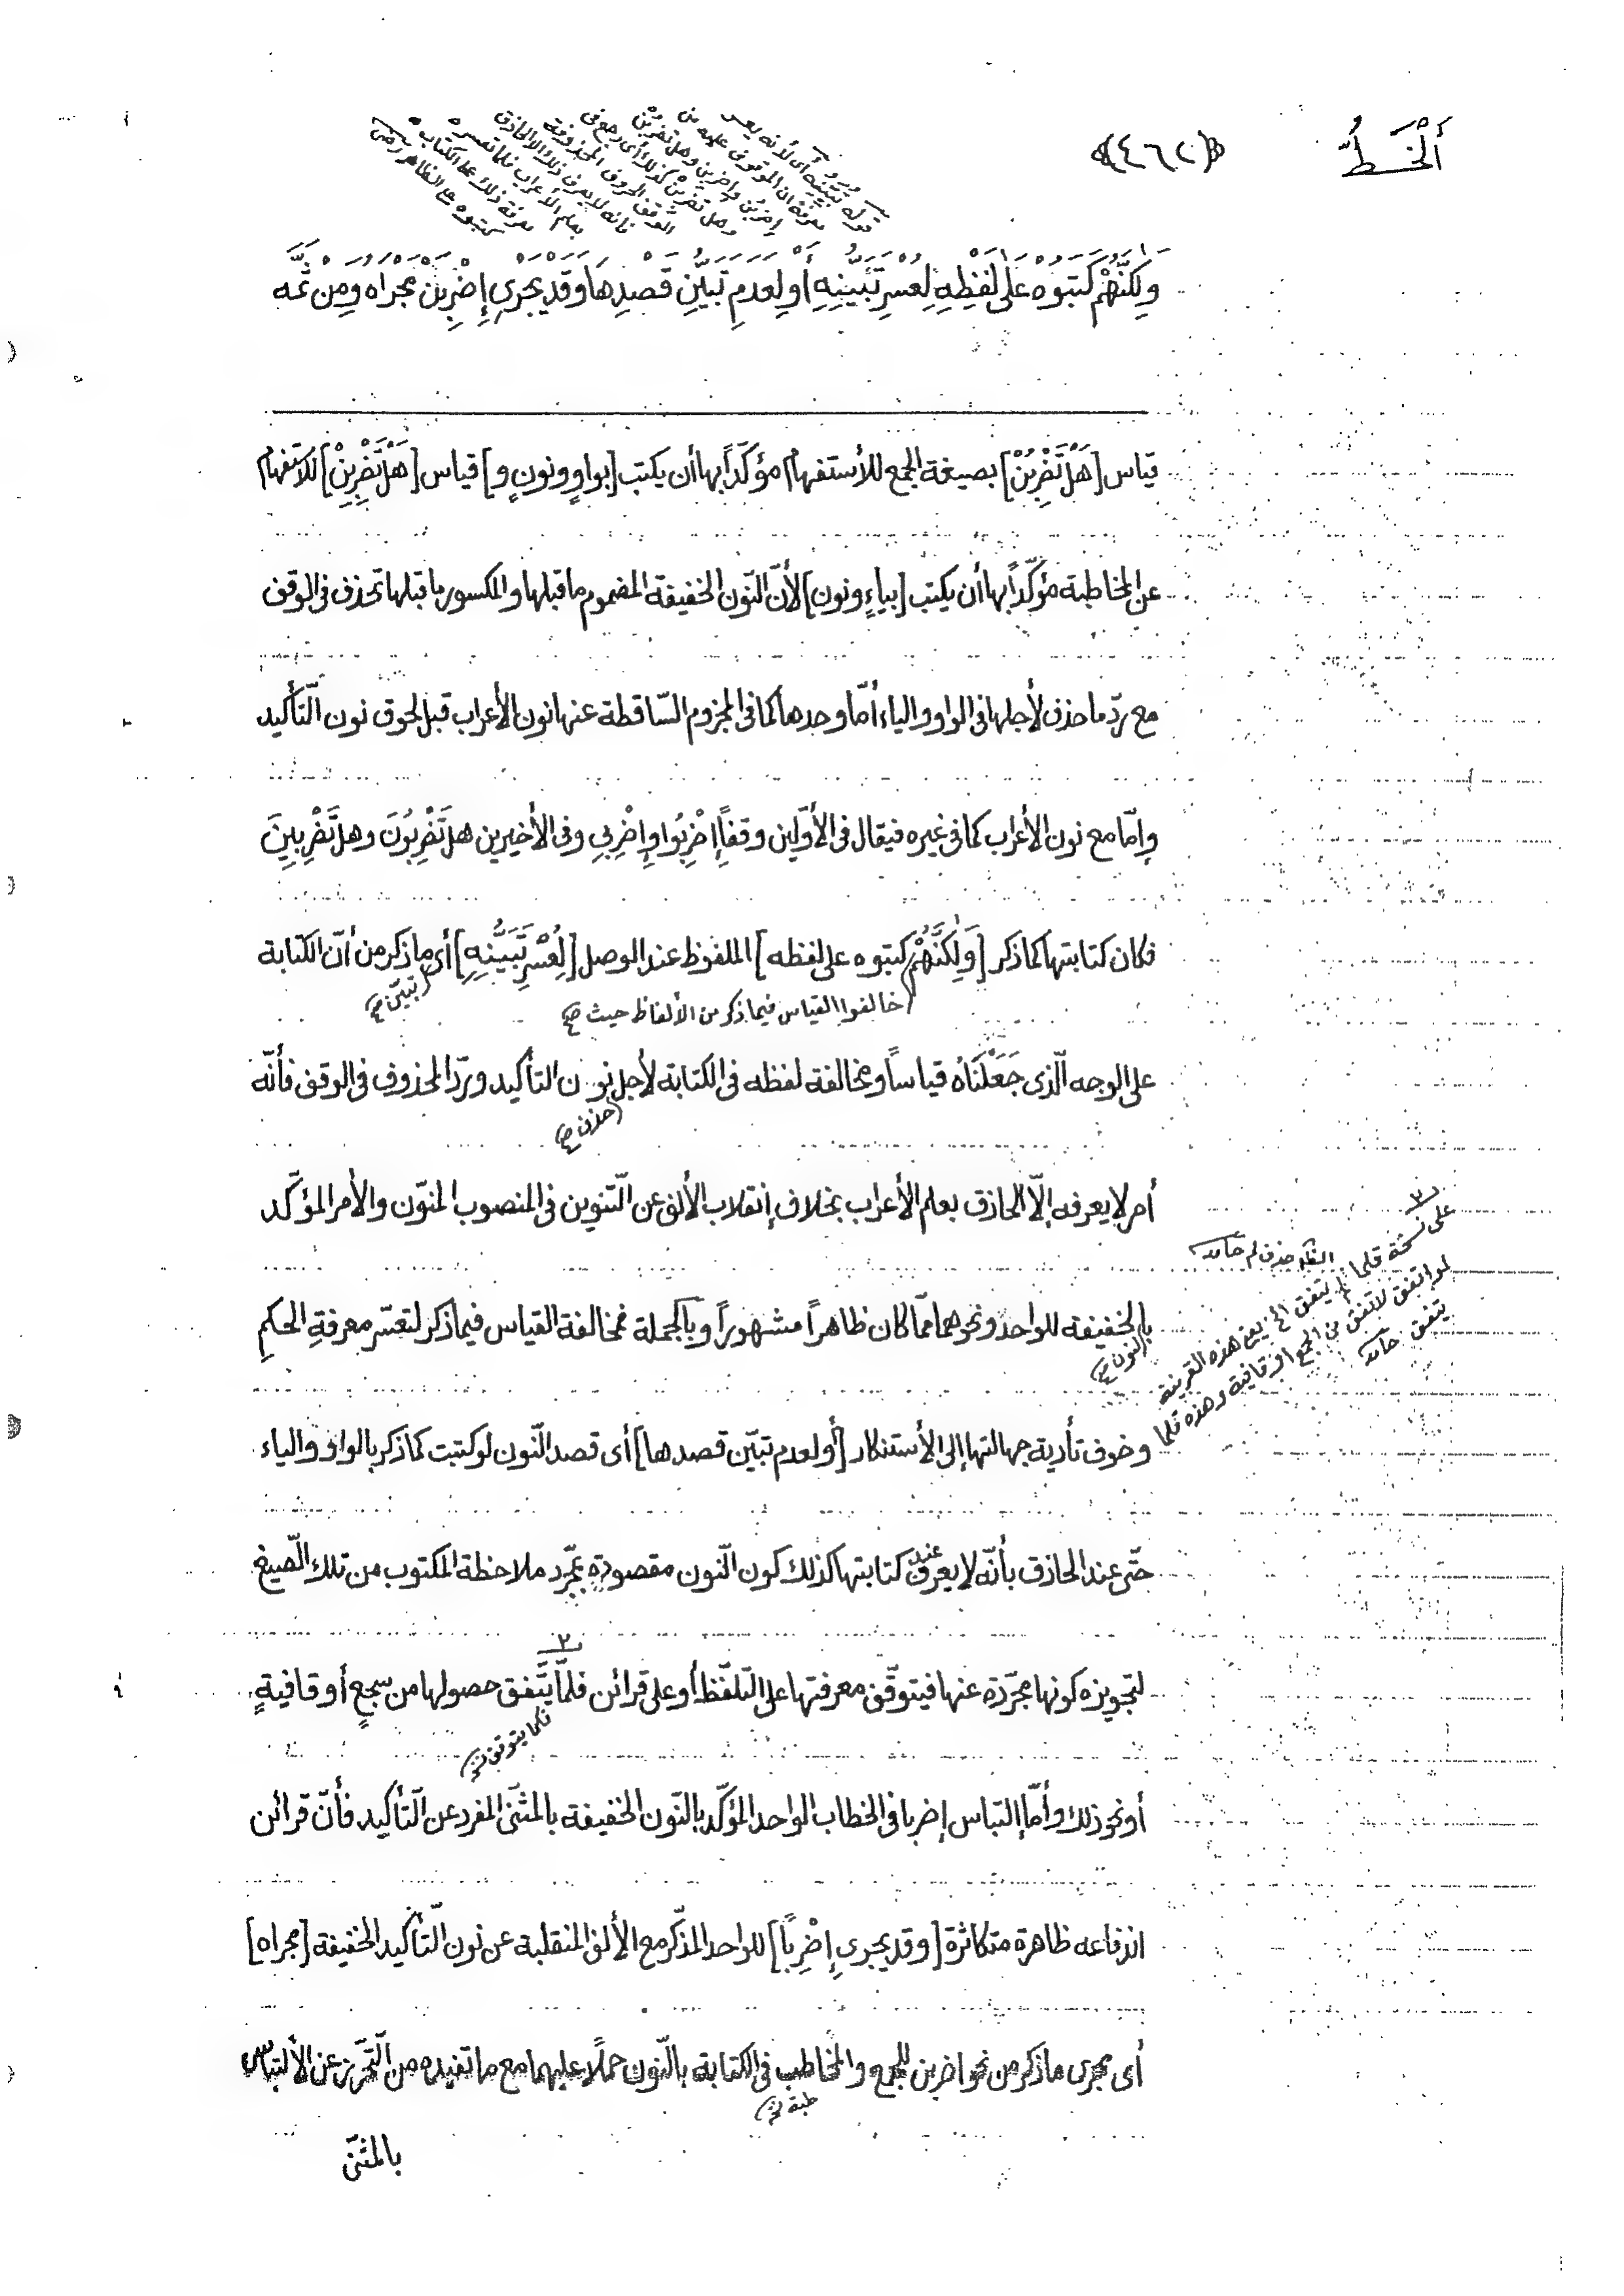 أَلْخَطُّ
﴿٤٦٢﴾
وَلٰكِنَّهُمْ كَتَبُوْهُ عَلٰى لَفْظِهِ لِعُسْرِ تَبَيُّنِهِ أَوْلِعَدمِ تَبَيُّنِ قَصْدِهَا وَقَدْ يُجْرٰى إِضْرِبَنْ مُجْرَاه وَمِنْ ثَمَّه
قياس [هَلْ تَضْرِبُنْ] بصيغة الجمع للأستفهام مؤكّداً بها أن يكتب [بواوٍ ونونٍ و] قياس [هَلْ تَضْرِبِنْ] للاستفهام
عن المخاطبة مؤكّداً بها أن يكتب [بياءٍ ونون] لأنّ النّون الخفيفة المضموم ما قبلها والمكسور ما قبلها تحذف فى الوقف
مع ردّ ما حذف لأجلها فى الواو والياء أمّا وحدها كما فى المجزوم السّاقطة عنها نون الأعراب قبل لحوق نون التّأكيد
وإمّا مع نون الأعراب كما فى غيره فيقال فى الأوّلين وقفاً إِضْرِبُوا وإِضْرِبِي وفى الأخيرين هل تَضْرِبُونَ وهل تَضْرِبِينَ
فكان كتابتها كما ذكر [وَلٰكِنَّهُمْ كتبوه على لفظه] الملفوظ عند الوصل [لِعُسْرِ تَبَيُّنِهِ] أى ما ذكر من أنّ الكتابة
(خالفوا القياس فيما ذكر من الألفاظ حيث خ)
(تبيّن خ)
على الوجه الّذى جَعَلْنَاه قياساً ومخالفة لفظه فى الكتابة لأجل نون التأكيد وردّ المحذوف فى الوقف فأنّه
(حذف خ)
أمر لا يعرفه إلّا الحاذق بعلم الأعراب بخلاف إنقلاب الألف عن التّنوين فى المنصوب المنوّن والأمر المؤكّد
بالخفيفة للواحد ونحوهما ممّا كان ظاهراً مشهوراً وبالجملة فمخالفة القياس فيما ذكر لتعسّر معرفةِ الحكمِ
(بالنون خ)
على نسخة قلما
يتفق الخ يعنى هذه القرينة
لو اتفق لاتفق من الجمع او قافية وهذه قلما
يتفق
وخوف تأدية جهالتها إلى الأستنكار [أَولعدم تبيّن قصدها] أى قصد النّون لو كتبت كما ذكر بالواو والياء
حتّى عند الحاذق بأنّه لا يعرف عند كتابتها كذلك كون النّون مقصودة بمجّرد ملاحظة المكتوب من تلك الصّيغ
لتجويزه كونها مجرّدة عنها فيتوقّف معرفتها على التّلفّظ أو على قرائن قلمّا يتّفق حصولها من سجعٍ أو قافيةٍ
٢
أو نحو ذلك وأمّا إلتباس إضربا فى الخطاب الواحد المؤكّد بالنّون الخفيفة بالمثنّى المفرد عن التّأكيد فأنّ قرائن
اندفاعه ظاهرة متكاثرة [وقد يجرى إِضْرِبًا] للواحد المذّكر مع الألف المنقلبة عن نون التّأكيد الخفيفة [مجراه]
أى مجرى ما ذكر من نحو اضربن للجمع والمخاطب فى الكتابة بالنّون حملًا عليهما مع ما تفيده من التّحرّز عن الألتباس
طبة خ)
بالمثنّى